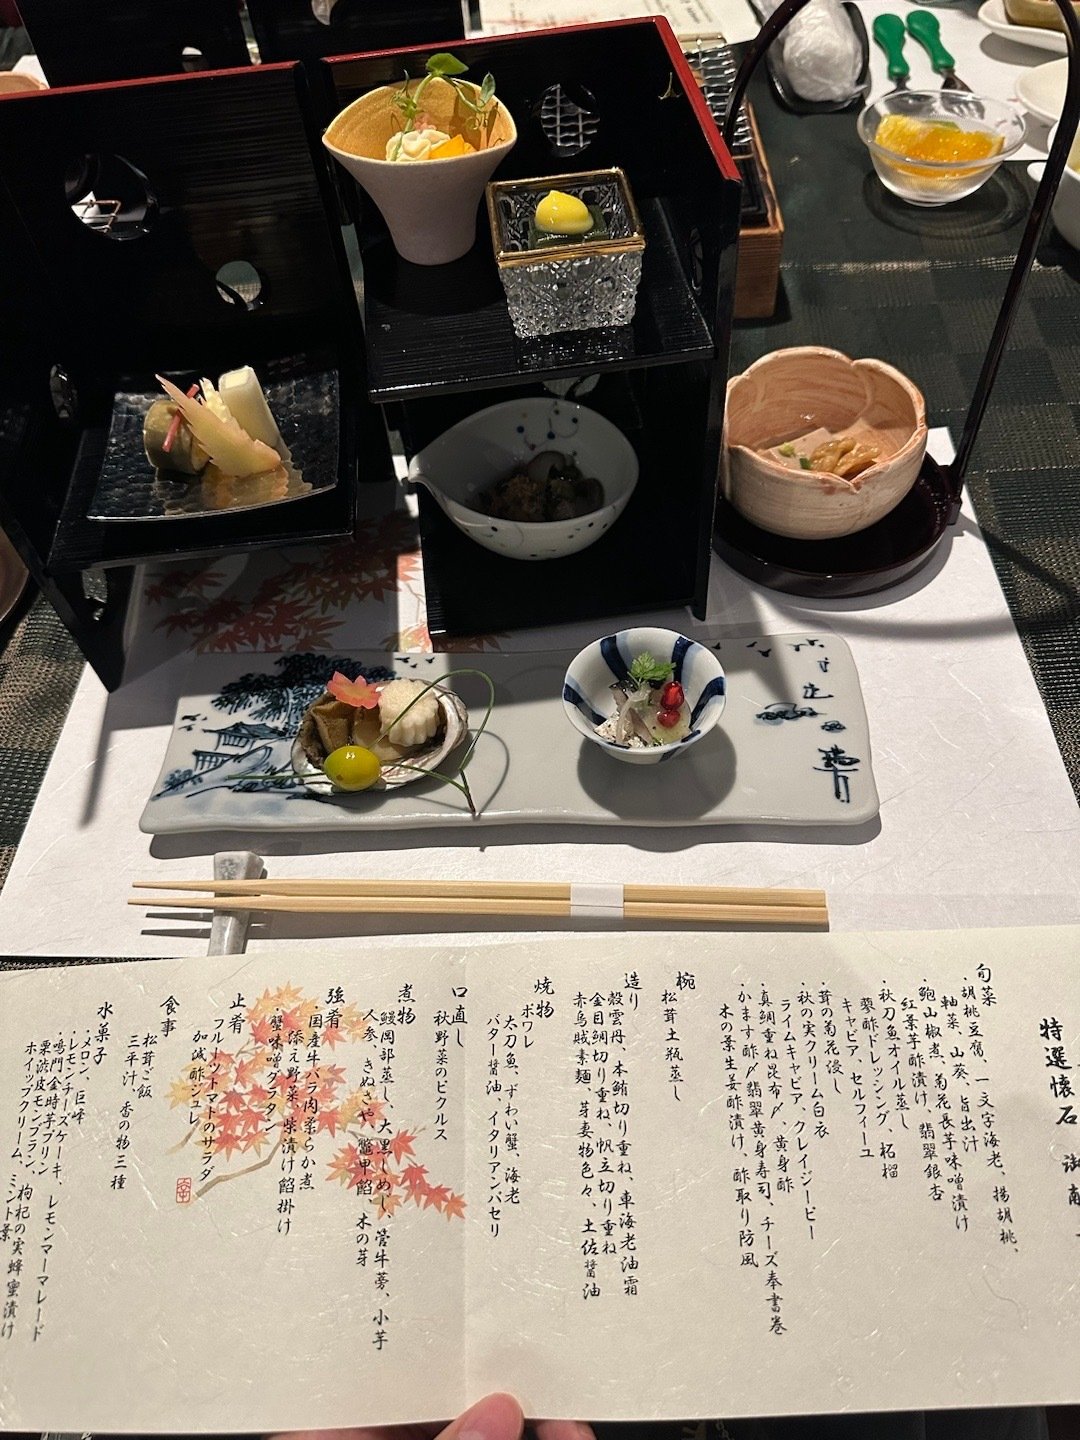 特選懐石　御献
旬菜
・胡桃豆腐、一文字海老、揚胡桃、
軸菜、山葵、旨出汁
・鮑山椒煮、菊花長芋味噌漬け
紅葉芋酢漬け、翡翠銀杏
・秋刀魚オイル蒸し
蓼酢ドレッシング、柘榴
キャビア、セルフィーユ
・茸の菊花浸し
・秋の実クリーム白衣
ライムキャビア、クレイジーピー
・真鯛重ね昆布〆、黄身酢
・かます酢〆翡翠黄身寿司、チーズ奉書巻
木の葉生姜酢漬け、酢取り防風
椀
松茸土瓶蒸し
造り
殻雲丹、本鮪切り重ね、車海老油霜
金目鯛切り重ね、帆立切り重ね
赤烏賊素麺、芽妻物色々、土佐醤油
焼物
ポワレ
太刀魚、ずわい蟹、海老
バター醤油、イタリアンパセリ
口直し
秋野菜のピクルス
煮物
鰻岡部蒸し、大黒しめじ、管牛蒡、小芋
人参、きぬさや、鼈甲餡、木の芽
強肴
・国産牛バラ肉柔らか煮
添え野菜、柴漬け餡掛け
・蟹味噌グラタン
止肴
フルーツトマトのサラダ
加減酢ジュレ
食事
松茸ご飯
三平汁、香の物三種
水菓子
・メロン、巨峰
・レモンチーズケーキ、レモンマーマレード
・鳴門金時芋プリン
栗渋皮モンブラン、枸杞の実蜂蜜漬け
ホイップクリーム、ミント葉